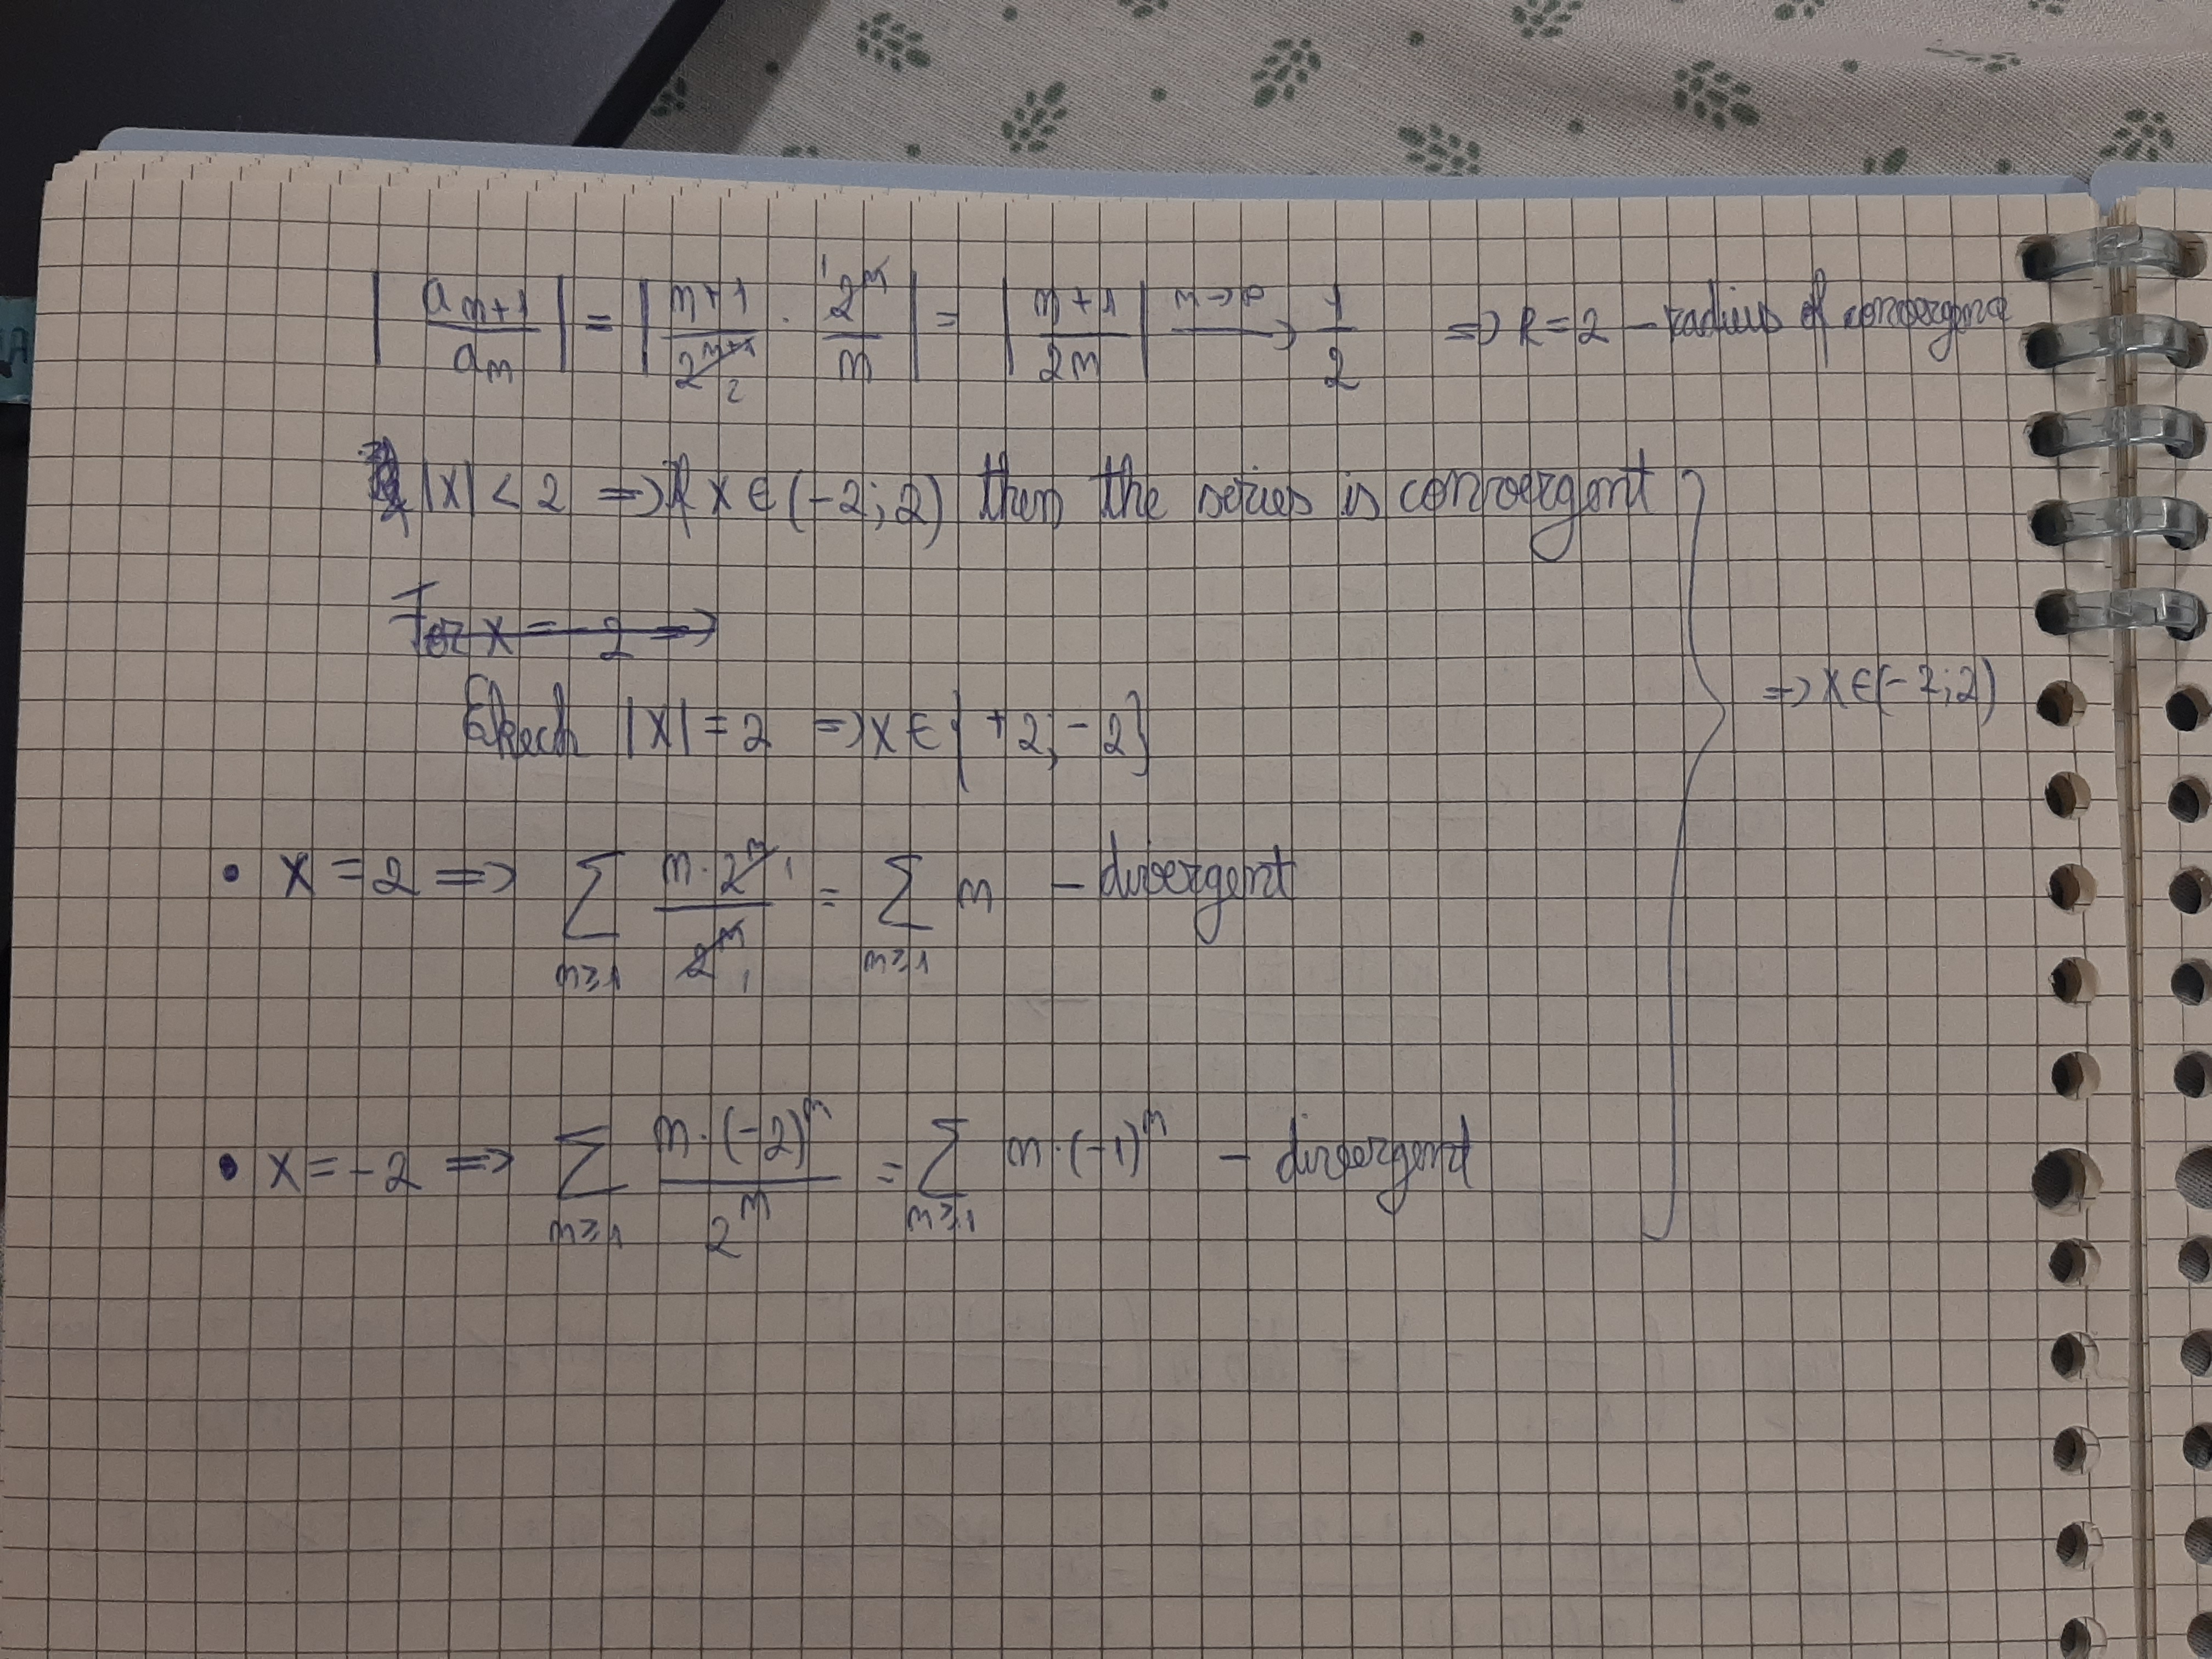 |a_{n+1}/a_n| = |n+1/2^{n+1} · 2^n/n| = |n+1/2n| n→∞ → 1/2 => R = 2 – radius of convergence
|x| < 2 => x ∈ (-2; 2) then the series is convergent
For x = -2 =>
|x| = 2 => x ∈ { +2; -2}
=> x ∈ (-2; 2)
• x = 2 => ∑_{n≥1} n·2^n/2^n = ∑_{n≥1} n – divergent
• x = -2 => ∑_{n≥1} n·(-2)^n/2^n = ∑_{n≥1} n·(-1)^n – divergent